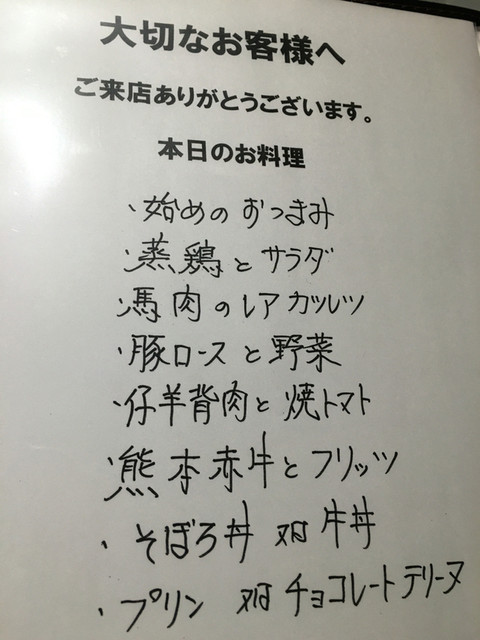 大切なお客様へ
ご来店ありがとうございます。
本日のお料理
・始めのおつまみ
・蒸鶏とサラダ
・馬肉のレアカツレツ
・豚ロースと野菜
・仔羊背肉と焼トマト
・熊本赤牛とフリッツ
・そぼろ丼 対 牛丼
・プリン 対 チョコレートテリーヌ